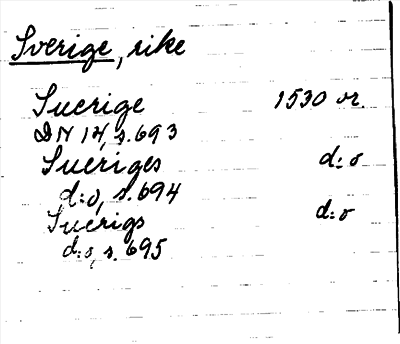 Sverige, rike
Suerige 1530 or.
DN 14, s. 693
Sueriges d:o
d:o, s. 694
Suerigs d:o
d:o, s. 695